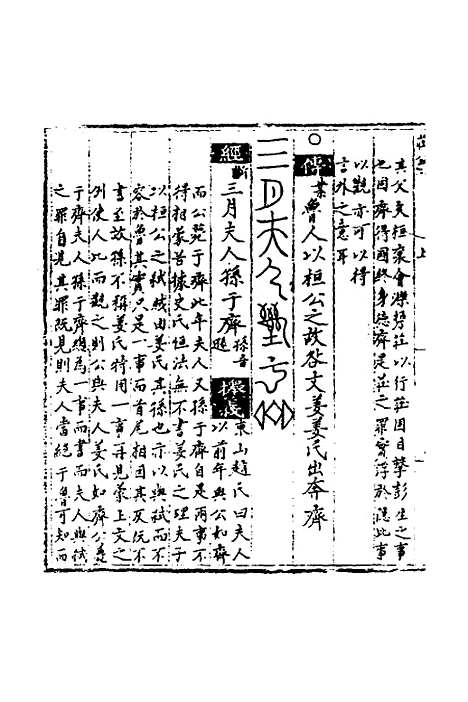 其父及桓哀會櫟勞莊以行莊因目擊彭生之事
也因齊得國終身德齊是莊之罪實浮於隱此事
以觀亦可以得
言外之意耳
傳 業魯人以桓公之故咎文姜姜氏出奔齊
三月夫人孫于齊
經 三月夫人孫于齊 孫音遜 東山趙氏曰夫人
以前年與公如齊
而公薨于齊此年夫人又孫于齊自是兩事不
得相蒙若據史氏恒法無不書姜氏之理夫子
以桓公之弒咸由姜氏其孫也亦以與弒而不
容於魯其實只是一事而首尾相因其反阮不
書至故孫不稱姜氏特用一事再見蒙上文之
例使人比而觀之則公與夫人姜氏如齊公薨
于齊夫人孫于齊總為一事而書而夫人與弒
之罪自見其罪既見則夫人當絕于魯可知而